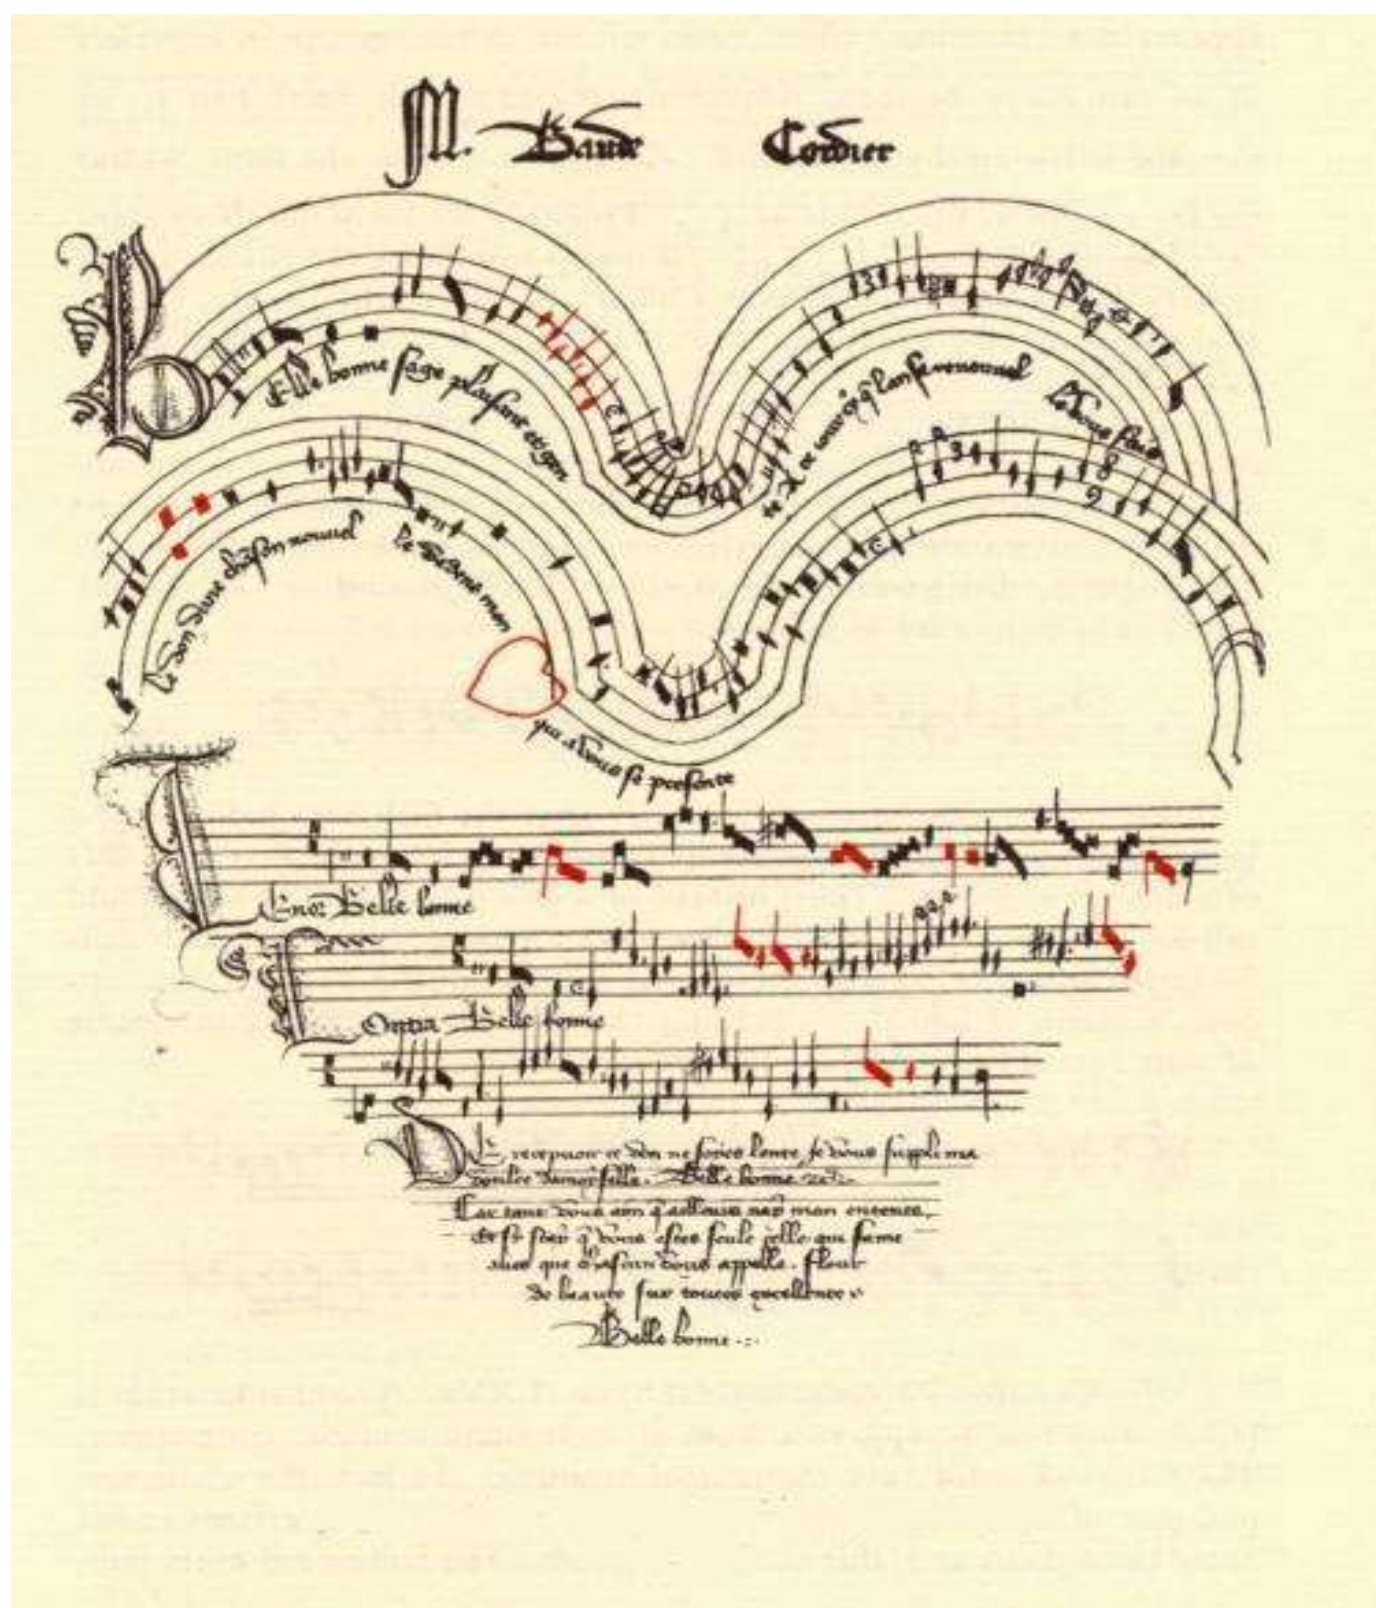 M. Baude Cordier
Belle bonne sage plaisant et gen
te A ce jour cy que lan se renouvel
Le vous fais
le don dune chason nouvel
le dedens mon
qui a vous se presente
Tenor Belle bonne
Contra Belle bonne
De recepvoir ce don ne soies lente Je vous suppli ma
doulce damoiselle. Belle bonne
Car tant vous aim qailleurs nay mon entente
Et sy scay q vous estes seule celle qui fame
aves que chascun vous appelle. fleur
de beaute sur toutes excellente
Belle bonne